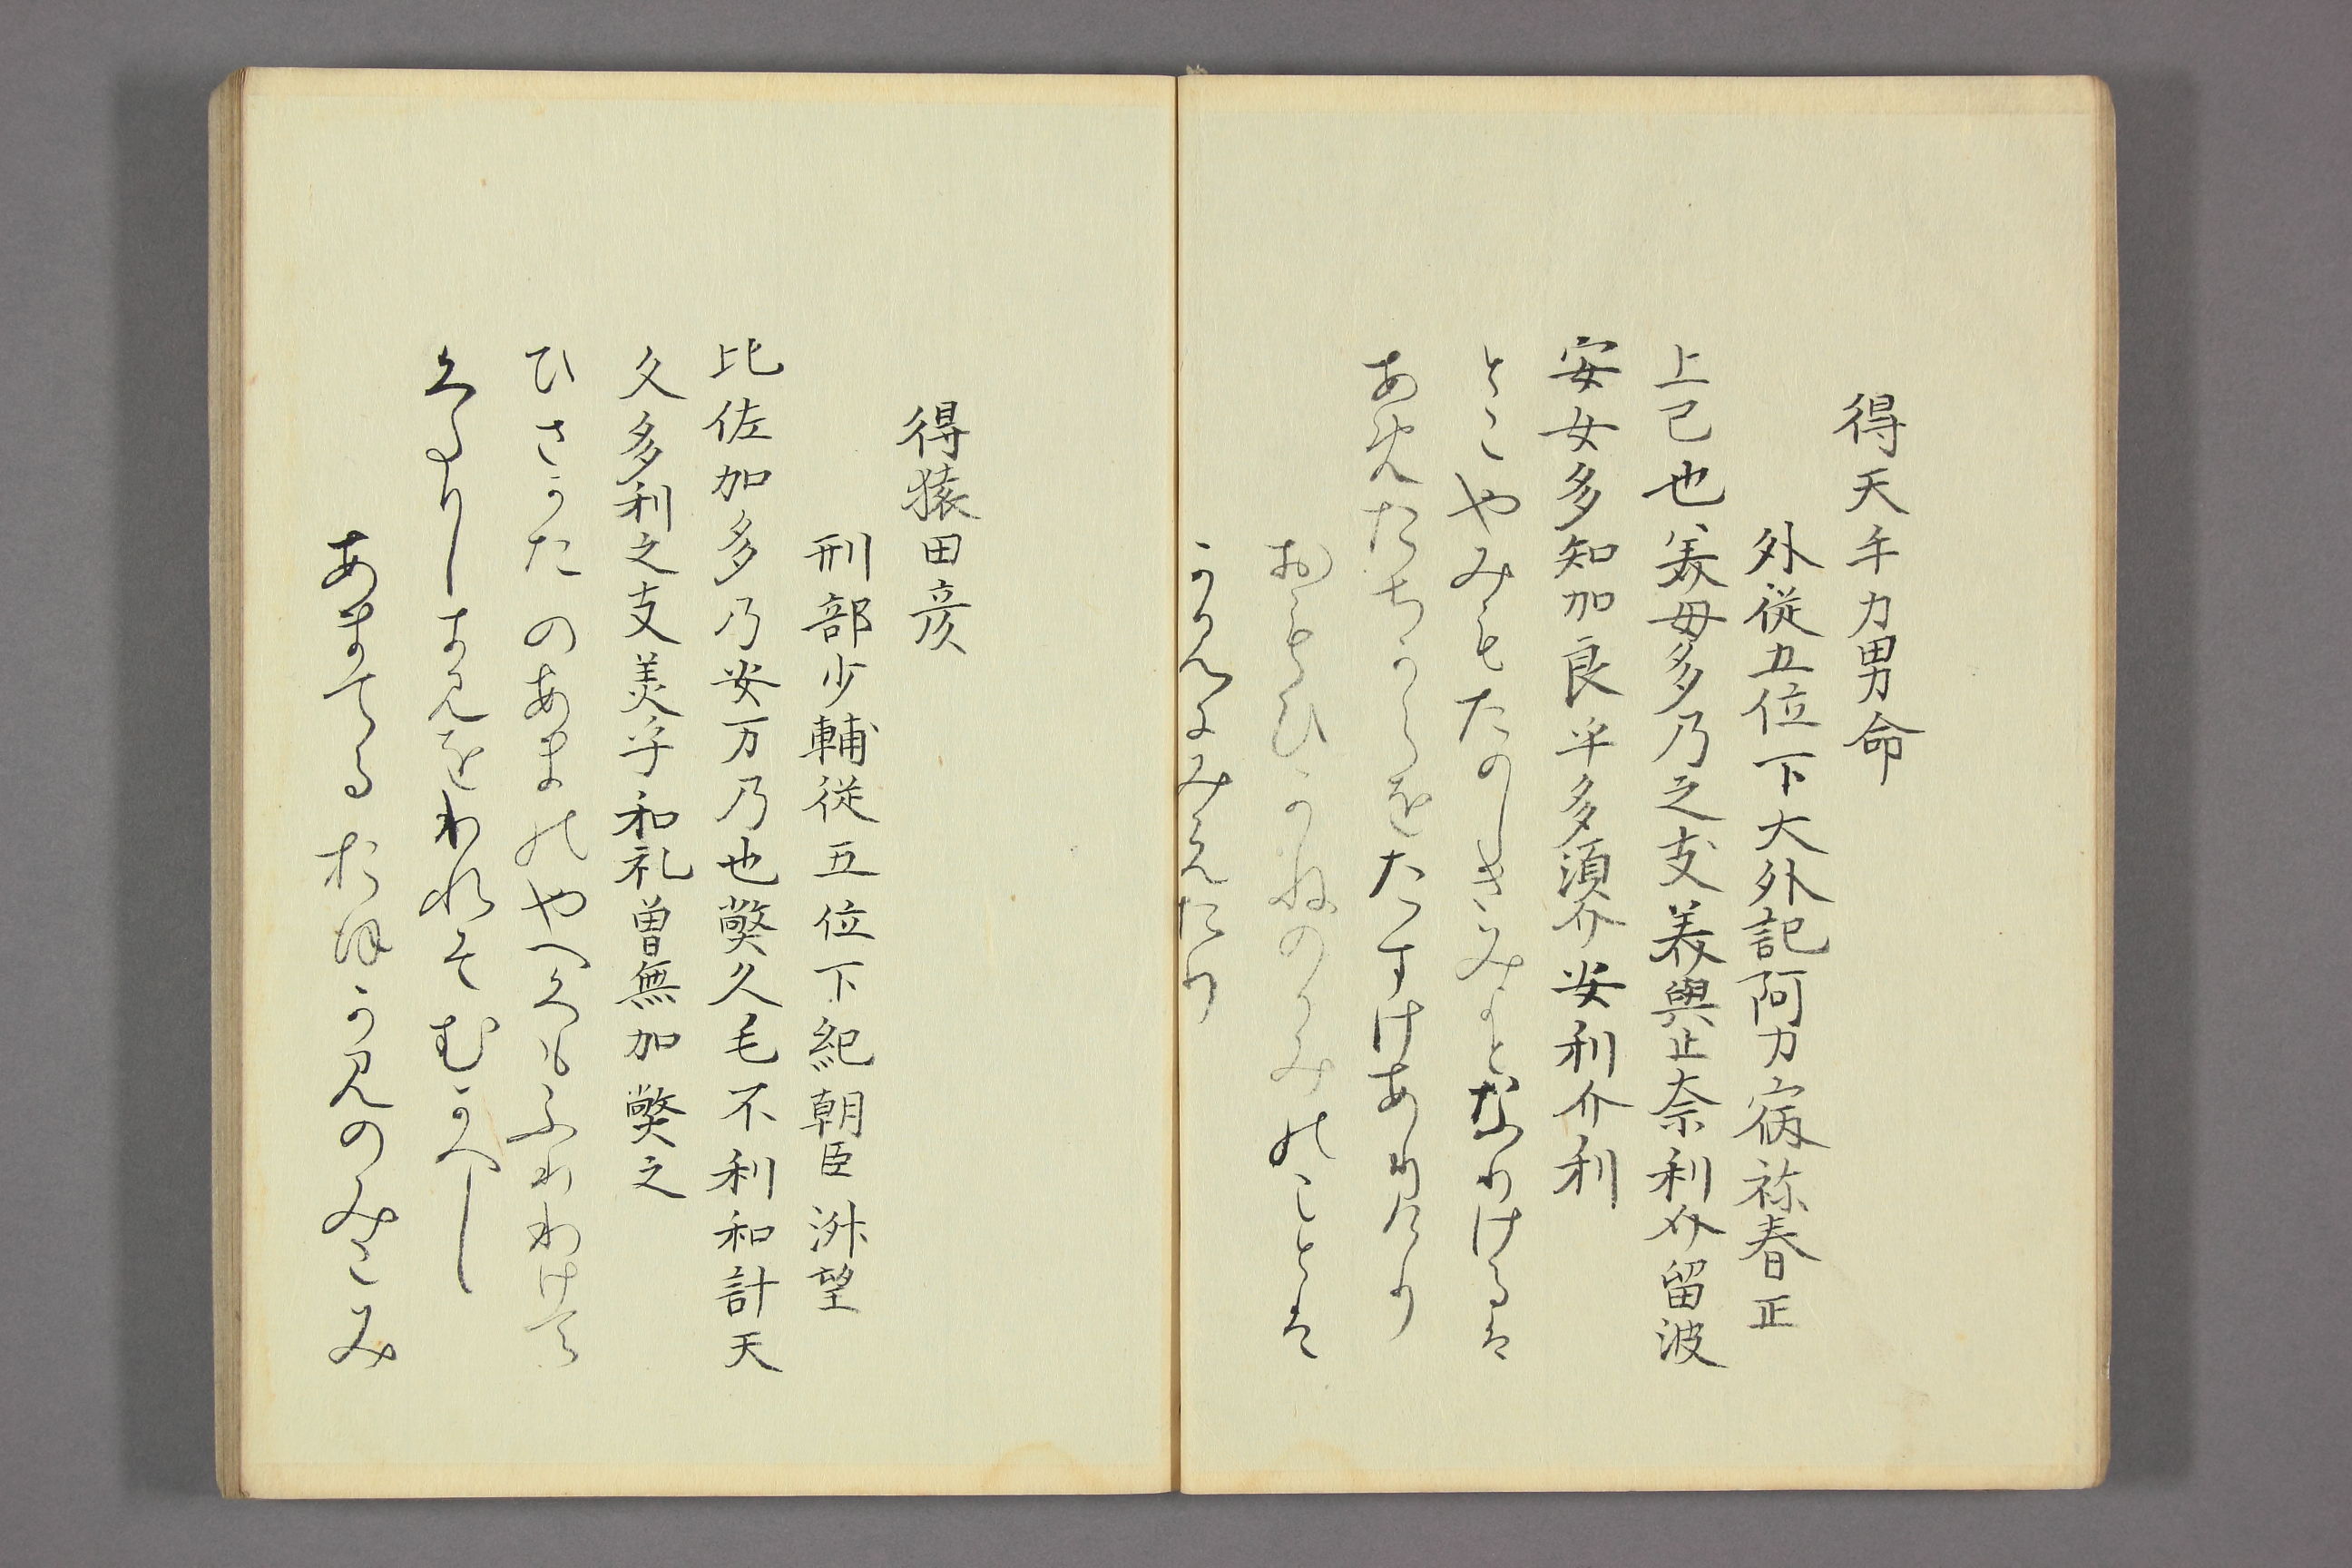 得天手力男命
外従五位下大外記阿刀宿祢春正
上己也美毋多乃之支美與止奈利介留波
安女多知加良乎多須介安利介利
とこやみもたのしきみよとなりけるは
あめたちからをたすけありけり
おもひかねのかみのことは
かんにみえたり
得猿田彦
刑部少輔従五位下紀朝臣淑望
比佐加多乃安万乃也弊久毛不利和計天
久多利之支美乎和礼曽無加弊之
ひさかたのあまのやへくもふりわけて
くたりしきみをわれそむかへし
あまてるおほかみのみこみ